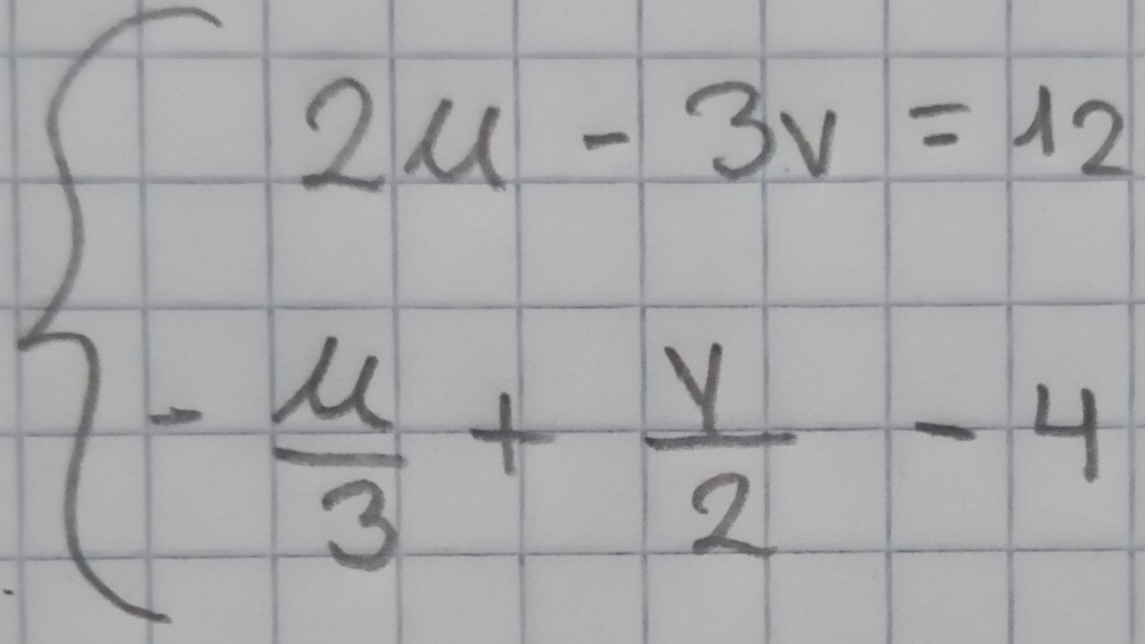 2u - 3v = 12
- u/3 + v/2 - 4